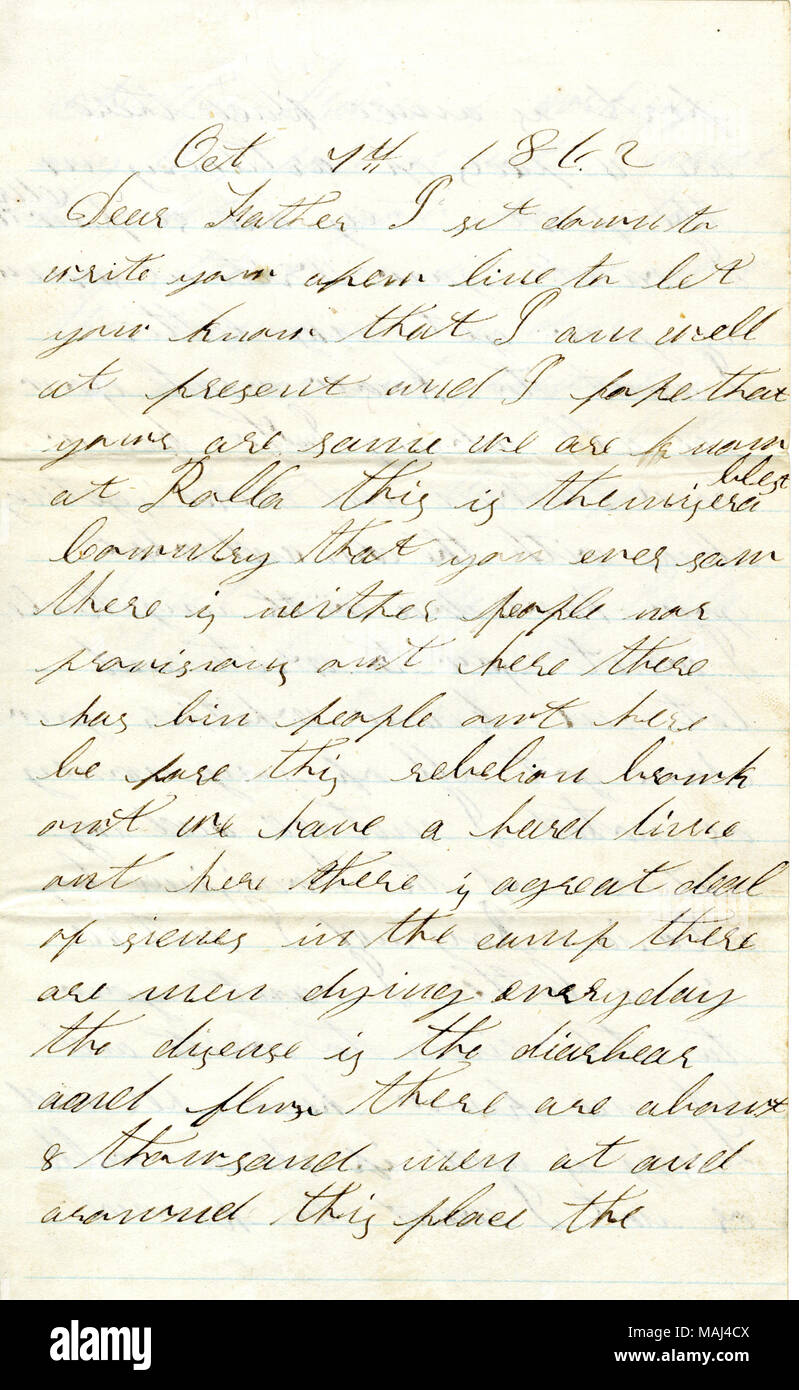 Oct 7th 1862
Dear Father I set down to
write you a few line to let
you know that I am well
at present and I hope that
yours are same we are know
at Rolla this is the miserablest
Country that you ever saw
there is neither people nor
provisions out here there
has bin people out here
be fore this rebelion brouk
out we have a hard time
out here there is agreat deal
of sicnes in the camp there
are men dying everyday
the disease is the diarhear
aand flux there are about
8 thousand men at and
around this place the
alamy
Image ID: MAJ4CX
www.alamy.com